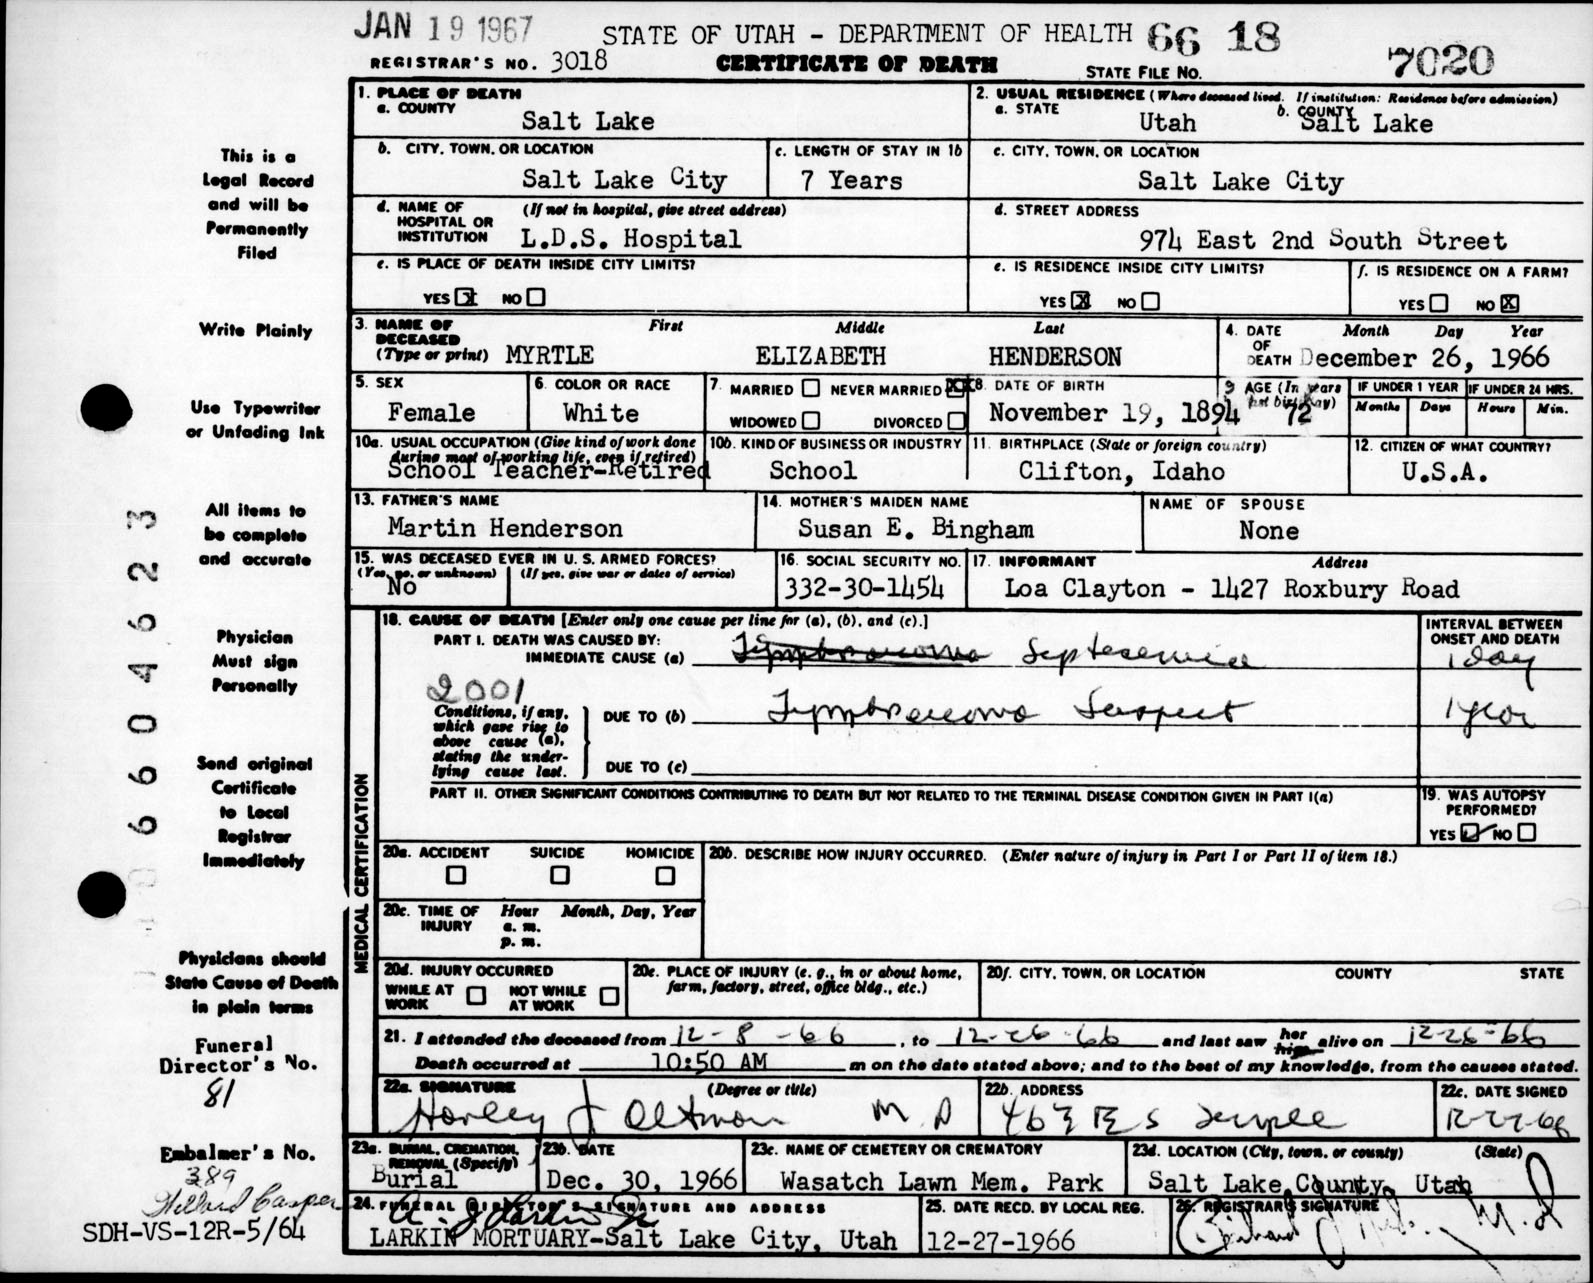 JAN 19 1967 STATE OF UTAH - DEPARTMENT OF HEALTH 66 18
REGISTRAR'S NO. 3018 CERTIFICATE OF DEATH STATE FILE NO. 7020
1. PLACE OF DEATH
a. COUNTY
Salt Lake
2. USUAL RESIDENCE (Where deceased lived. If institution: Residence before admission)
a. STATE Utah b. COUNTY Salt Lake
b. CITY, TOWN, OR LOCATION
Salt Lake City
c. LENGTH OF STAY IN 1b
7 Years
c. CITY, TOWN, OR LOCATION
Salt Lake City
d. NAME OF HOSPITAL OR INSTITUTION (If not in hospital, give street address)
L.D.S. Hospital
d. STREET ADDRESS
974 East 2nd South Street
e. IS PLACE OF DEATH INSIDE CITY LIMITS?
YES X NO
e. IS RESIDENCE INSIDE CITY LIMITS?
YES X NO
f. IS RESIDENCE ON A FARM?
YES NO X
3. NAME OF DECEASED (Type or print) First Middle Last
MYRTLE ELIZABETH HENDERSON
4. DATE OF DEATH Month Day Year
December 26, 1966
5. SEX
Female
6. COLOR OR RACE
White
7. MARRIED NEVER MARRIED XX
WIDOWED DIVORCED
8. DATE OF BIRTH
November 19, 1894
9. AGE (In years last birthday)
72
IF UNDER 1 YEAR IF UNDER 24 HRS.
Months Days Hours Min.
10a. USUAL OCCUPATION (Give kind of work done during most of working life, even if retired)
School Teacher-Retired
10b. KIND OF BUSINESS OR INDUSTRY
School
11. BIRTHPLACE (State or foreign country)
Clifton, Idaho
12. CITIZEN OF WHAT COUNTRY?
U.S.A.
13. FATHER'S NAME
Martin Henderson
14. MOTHER'S MAIDEN NAME
Susan E. Bingham
NAME OF SPOUSE
None
15. WAS DECEASED EVER IN U. S. ARMED FORCES?
(Yes, no, or unknown) (If yes, give war or dates of service)
No
16. SOCIAL SECURITY NO.
332-30-1454
17. INFORMANT Address
Loa Clayton - 1427 Roxbury Road
MEDICAL CERTIFICATION
18. CAUSE OF DEATH [Enter only one cause per line for (a), (b), and (c).]
INTERVAL BETWEEN ONSET AND DEATH
PART I. DEATH WAS CAUSED BY:
IMMEDIATE CAUSE (a) Septecemia 1 day
2001
Conditions, if any, which gave rise to above cause (a), stating the underlying cause last.
DUE TO (b) Lymphosarcoma Suspect 1 year
DUE TO (c)
PART II. OTHER SIGNIFICANT CONDITIONS CONTRIBUTING TO DEATH BUT NOT RELATED TO THE TERMINAL DISEASE CONDITION GIVEN IN PART I(a)
19. WAS AUTOPSY PERFORMED?
YES ✓ NO
20a. ACCIDENT SUICIDE HOMICIDE
20b. DESCRIBE HOW INJURY OCCURRED. (Enter nature of injury in Part I or Part II of item 18.)
20c. TIME OF INJURY Hour Month, Day, Year
a. m.
p. m.
20d. INJURY OCCURRED
WHILE AT WORK NOT WHILE AT WORK
20e. PLACE OF INJURY (e. g., in or about home, farm, factory, street, office bldg., etc.)
20f. CITY, TOWN, OR LOCATION COUNTY STATE
21. I attended the deceased from 12-8-66, to 12-26-66 and last saw her him alive on 12-26-66
Death occurred at 10:50 AM m on the date stated above; and to the best of my knowledge, from the causes stated.
22a. SIGNATURE (Degree or title)
Harley J Altman M D
22b. ADDRESS
463 E S Temple
22c. DATE SIGNED
12-27-66
23a. BURIAL, CREMATION, REMOVAL (Specify)
Burial
23b. DATE
Dec. 30, 1966
23c. NAME OF CEMETERY OR CREMATORY
Wasatch Lawn Mem. Park
23d. LOCATION (City, town, or county) (State)
Salt Lake County, Utah
24. FUNERAL DIRECTOR'S SIGNATURE AND ADDRESS
LARKIN MORTUARY-Salt Lake City, Utah
25. DATE RECD. BY LOCAL REG.
12-27-1966
26. REGISTRAR'S SIGNATURE
This is a
Legal Record
and will be
Permanently
Filed
Write Plainly
Use Typewriter
or Unfading Ink
All items to
be complete
and accurate
Physician
Must sign
Personally
Send original
Certificate
to Local
Registrar
Immediately
Physicians should
State Cause of Death
in plain terms
Funeral
Director's No.
81
Embalmer's No.
389
Willard Casper
SDH-VS-12R-5/64
6604623